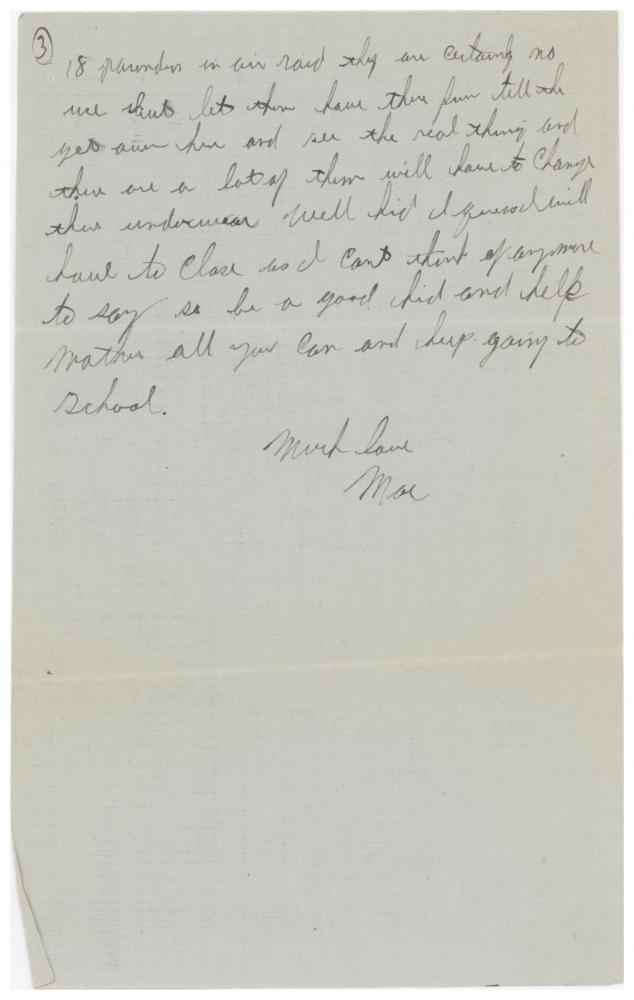 3
18 pounders in air raid they are certainly no
use but let them have there fun till the
get over here and see the real thing and
there are a lot of them will have to change
there underwear Well kid I guess I will
have to close as I cant think of anymore
to say so be a good kid and help
Mother all you can and keep going to
School.
Much love
Moe